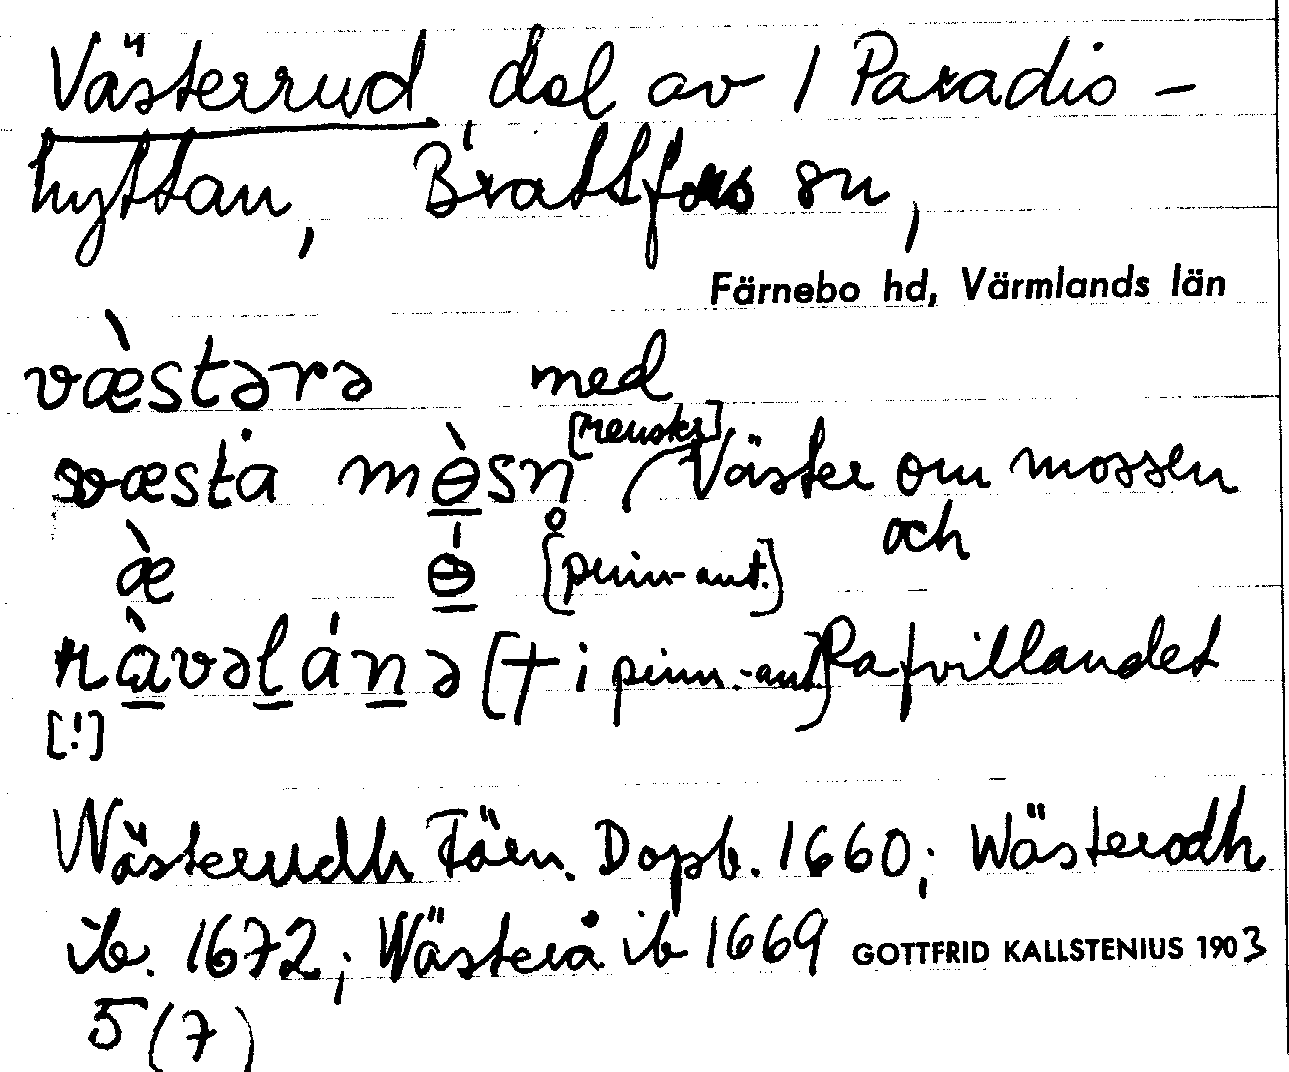 Västerrud, del av 1 Paradis-
hyttan, Brattfors sn,
Färnebo hd, Värmlands län
væ̀stərə med
[rensks]
væsta mɵ̀sn Väster om mossen
och
æ̀ ɵ́ [penn-ant.]
ràvəlánə [† i penn.-ant] Rafvillandet
[!]
Wästerudh Färn. Dopb. 1660; Wästerodh
ib. 1672; Wästerå ib 1669 GOTTFRID KALLSTENIUS 1903
5 (7)